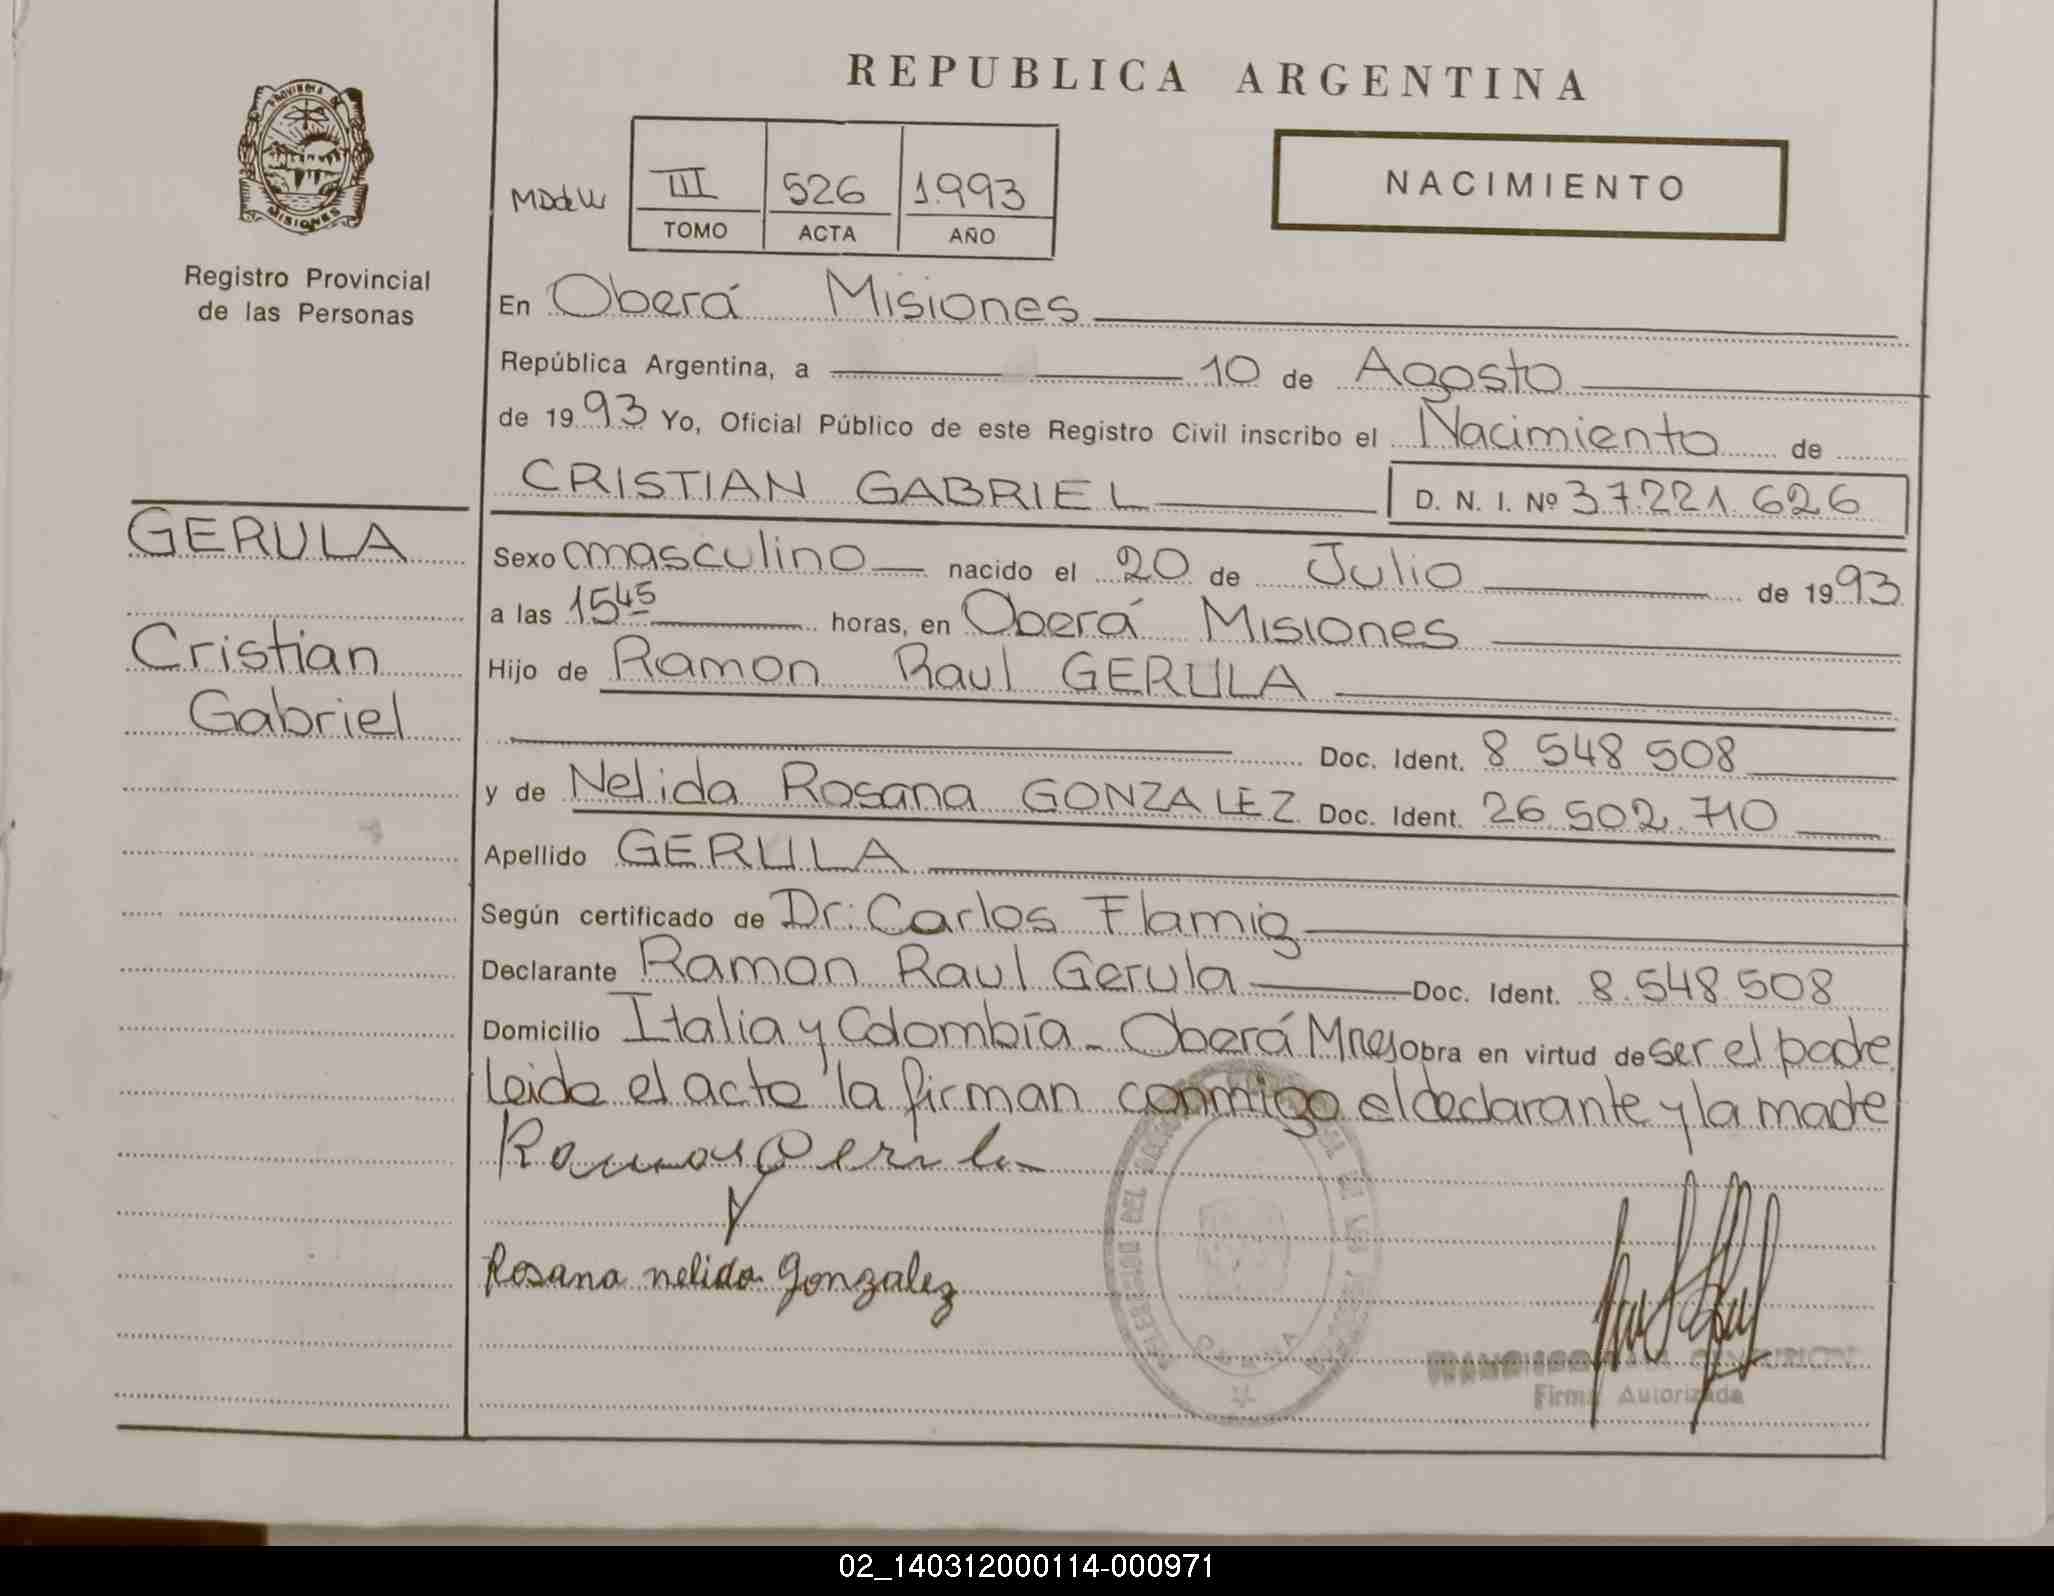 REPUBLICA ARGENTINA
PROVINCIA DE
MISIONES
Registro Provincial
de las Personas
III 526 1.993
TOMO ACTA AÑO
NACIMIENTO
En Oberá Misiones
República Argentina, a 10 de Agosto
de 1993 Yo, Oficial Público de este Registro Civil inscribo el Nacimiento de
CRISTIAN GABRIEL D. N. I. Nº 37.221.626
GERULA
Cristian
Gabriel
Sexo masculino nacido el 20 de Julio de 1993
a las 15 45 horas, en Oberá Misiones
Hijo de Ramon Raul GERULA
Doc. Ident. 8.548.508
y de Nelida Rosana GONZALEZ Doc. Ident. 26.502.710
Apellido GERULA
Según certificado de Dr: Carlos Flamig
Declarante Ramon Raul Gerula Doc. Ident. 8.548.508
Domicilio Italia y Colombía - Oberá Mnes Obra en virtud de ser el padre
leida el acta la firman conmigo el declarante y la madre
Ramon Gerula
Rosana nelida gonzalez
Firma Autorizada
02_140312000114-000971